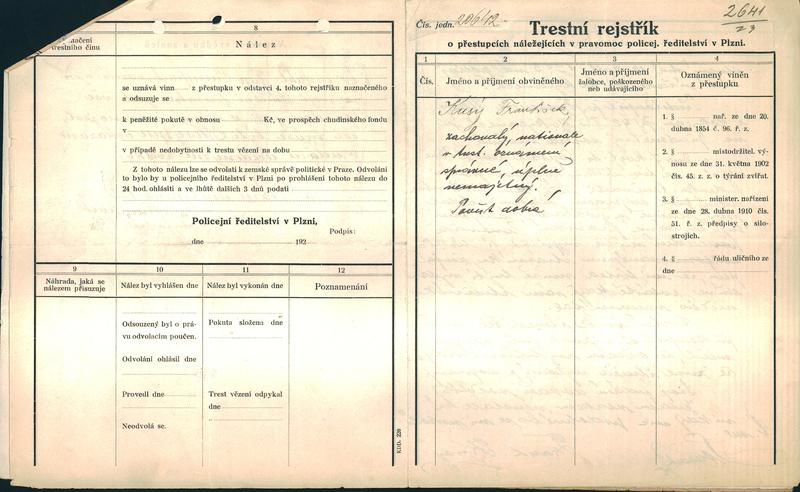 načení
trestního činu
8
Nález
se uznává vinn
z přestupku v odstavci 4. tohoto rejstříku naznačeného
a odsuzuje se
k peněžité pokutě v obnosu
Kč, ve prospěch chudinského fondu
v
v případě nedobytnosti k trestu vězení na dobu
Z tohoto nálezu lze se odvolati k zemské správě politické v Praze. Odvolání
to bylo by u policejního ředitelství v Plzni po prohlášení tohoto nálezu do
24 hod. ohlásiti a ve lhůtě dalších 3 dnů podati
Policejní ředitelství v Plzni,
dne
192
Podpis:
9
10
11
12
Náhrada, jaká se
nálezem přisuzuje
Nález byl vyhlášen dne
Nález byl vykonán dne
Poznamenání
Odsouzený byl o prá-
vu odvolacím poučen.
Odvolání ohlásil dne
Provedl dne
Neodvolá se.
Pokuta složena dne
Trest vězení odpykal
dne
KDD. 220
Čís. jedn. 206/12
2641
23
Trestní rejstřík
o přestupcích náležejících v pravomoc policej. ředitelství v Plzni.
1
2
3
4
Čís.
Jméno a příjmení obviněného
Jméno a příjmení
žalobce, poškozeného
neb udávajícího
Oznámený viněn
z přestupku
Kusý František,
zachovalý, nationale
v trest. oznámení
správné, úplně
nemajetný.
Pověst dobrá
1. § nař. ze dne 20.
dubna 1854 č. 96. ř. z.
2. § místodržitel. vý-
nosu ze dne 31. května 1902
čís. 45. z. z. o týrání zvířat.
3. § minister. nařízení
ze dne 28. dubna 1910 čís.
51. ř. z. předpisy o silo-
strojích.
4. § řádu uličního ze
dne